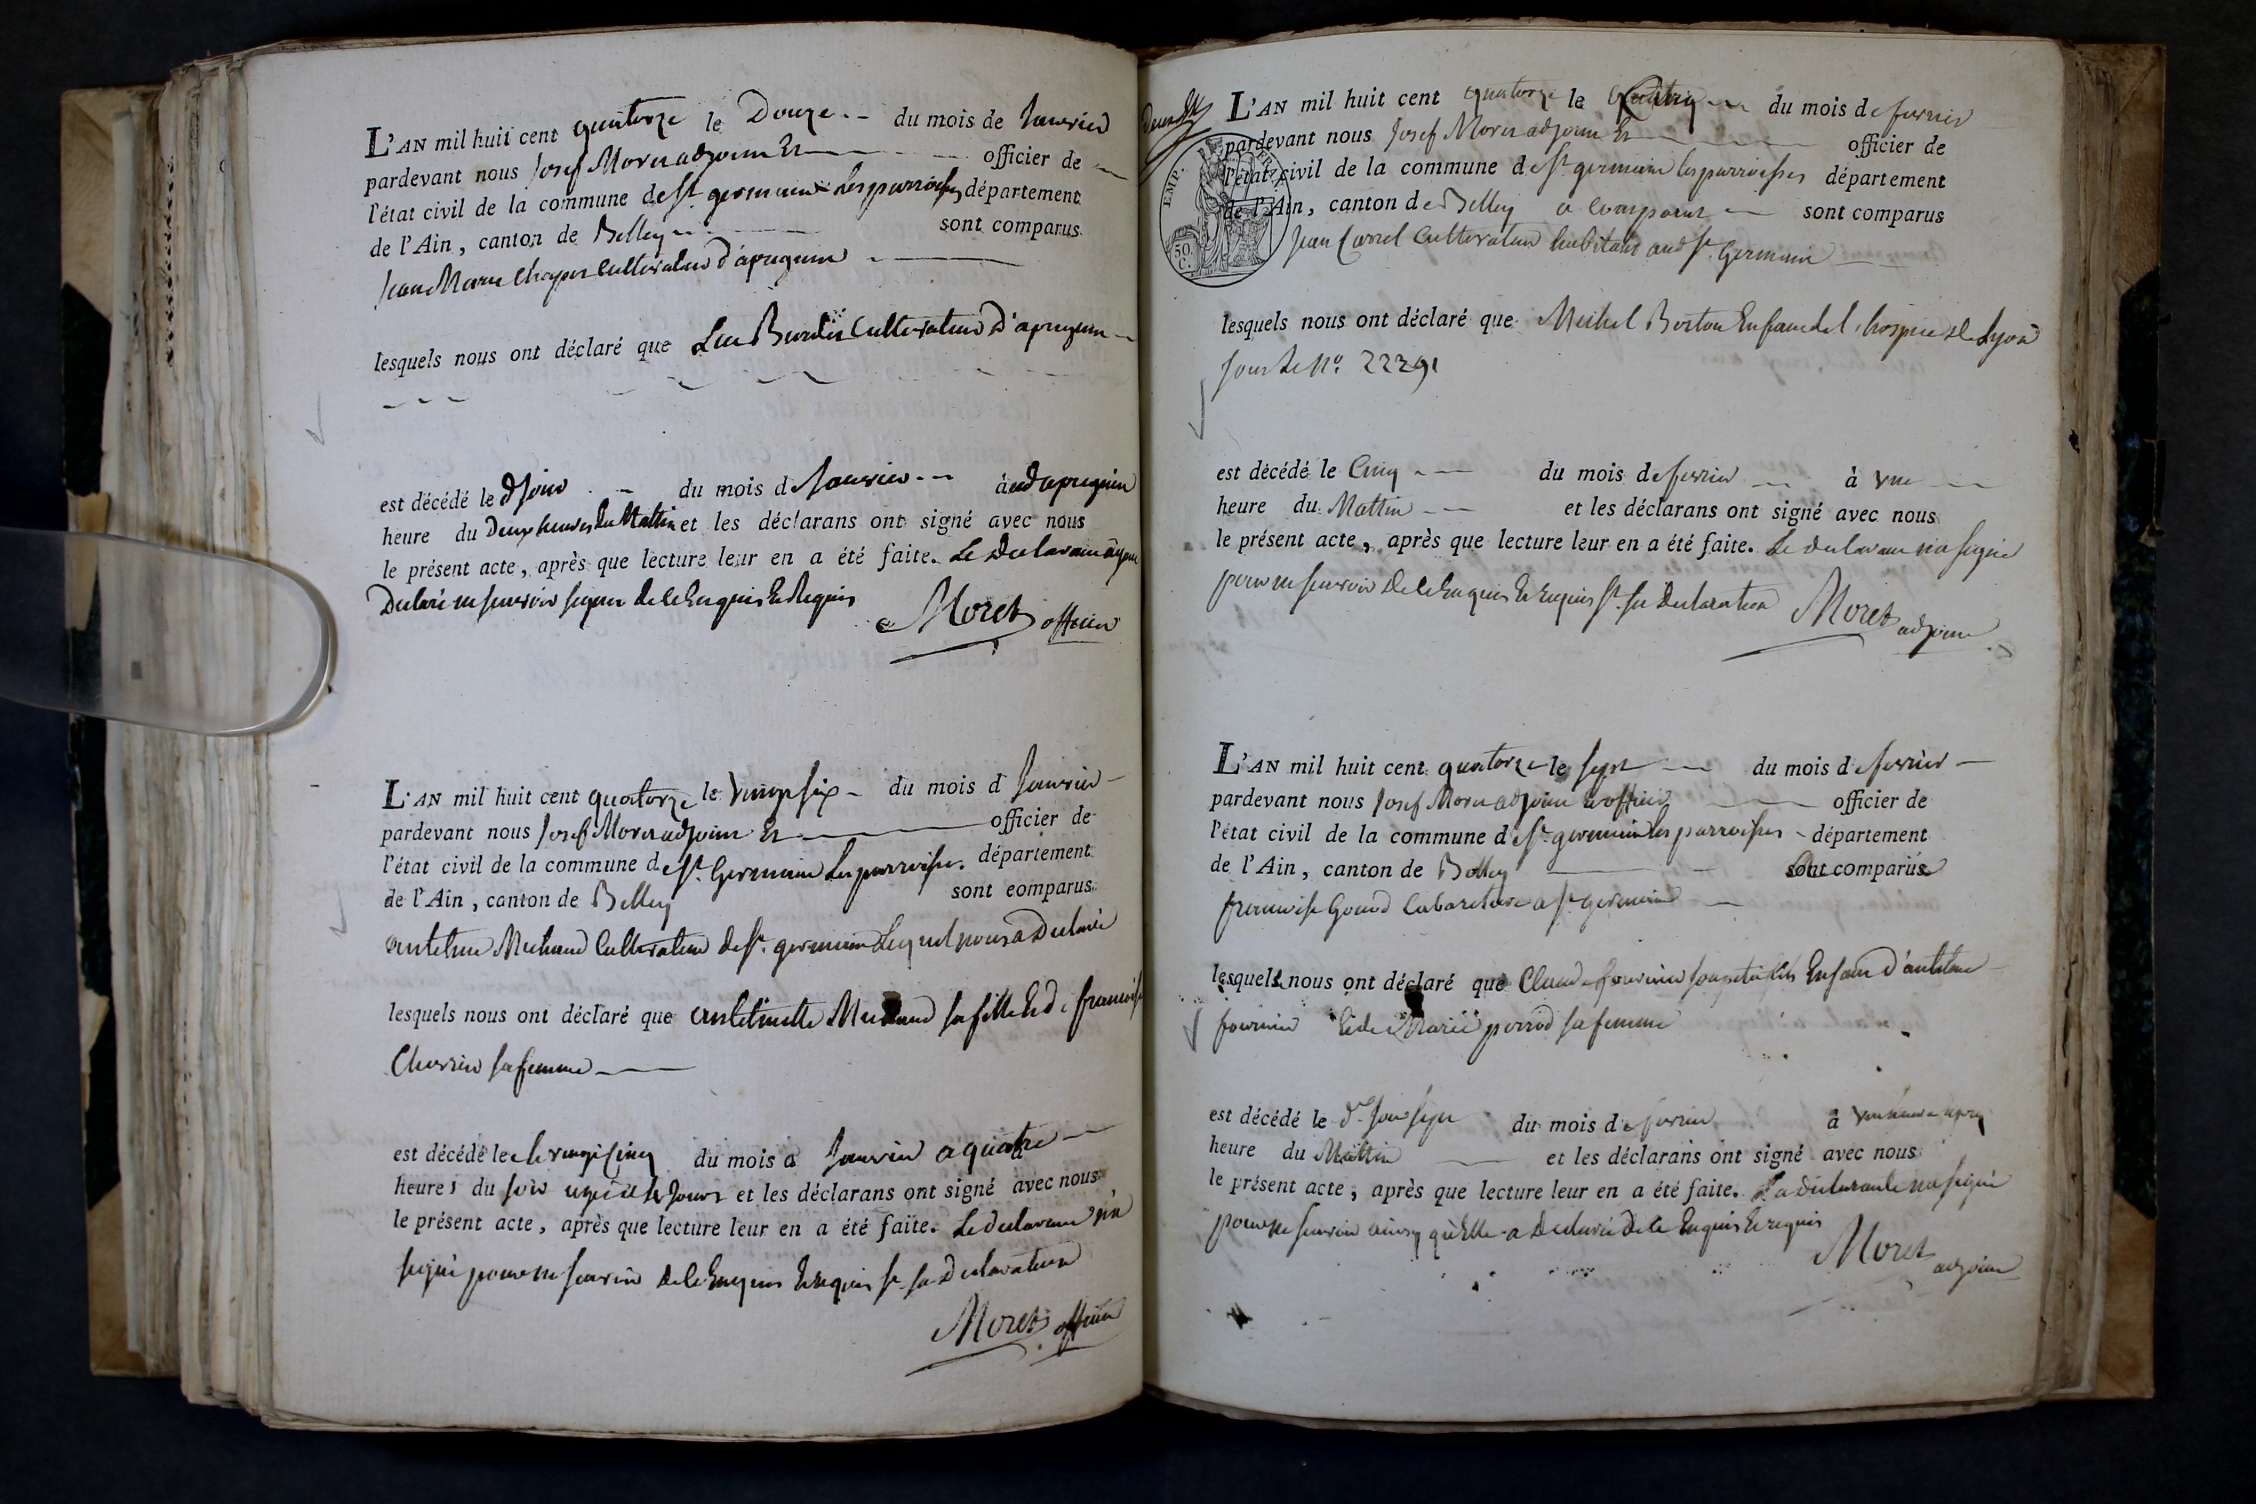 L'AN mil huit cent quatorze le Douze du mois de Janvier
pardevant nous Josef Moret adjoint Et officier de
l'état civil de la commune de St germain Les parroisses département
de l'Ain, canton de Belley sont comparus
Jean Marie Chapen Cultivateur d'apregnin
lesquels nous ont déclaré que Cultivateur D'apregnin
est décédé le d jour du mois d Janvier aud apregnin
heure du Deux heures du Mattin et les déclarans ont signé avec nous
le présent acte, après que lecture leur en a été faite. Le Declarant ayant
Declaré ne scavoir signer de ce Enquis Et Requis
Moret officier
L'AN mil huit cent quatorze le vingt six du mois d Janvier
pardevant nous Josef Moret adjoint Et officier de
l'état civil de la commune de St Germain Les parroisses département
de l'Ain, canton de Belley sont comparus
antelme Michaud Cultivateur de St germain Lequel nous a Declaré
lesquels nous ont déclaré que sa fille Et de francoise
sa femme
est décédé le le vingt Cinq du mois d Janvier a quatre
heures du soir et les déclarans ont signé avec nous
le présent acte, après que lecture leur en a été faite. Le declarant n'a
signé pour ne scavoir de ce Enquis Et requis St sa Declaration
Moret officier
L'AN mil huit cent quatorze le du mois de fevrier
pardevant nous Josef Moret adjoint Et officier de
l'état civil de la commune de St germain les parroisses département
de l'Ain, canton de Belley a Comparut sont comparus
EMP.
50 C.
Jean Carrel Cultivateur habitant aud St Germain
lesquels nous ont déclaré que Michel Borton Enfant de l'hospice de Lyon
sous Le No. 22291
est décédé le Cinq du mois de fevrier à une
heure du Mattin et les déclarans ont signé avec nous
le présent acte, après que lecture leur en a été faite. Le declarant n'a signé
pour ne scavoir de ce Enquis Et requis St sa Declaration
Moret adjoint
L'AN mil huit cent quatorze le sept du mois de fevrier
pardevant nous Josef Moret adjoint officier de
l'état civil de la commune de St germain les parroisses département
de l'Ain, canton de Belley sont comparus
francoise Goud Cabaretiere a St germain
lesquels nous ont déclaré que Claude fournier son petit fils Enfant d'antelme
fournier Et de Marie perrod sa femme
est décédé le d. jour sept du mois de fevrier à
heure du Mattin et les déclarans ont signé avec nous
le présent acte, après que lecture leur en a été faite. La declarante n'a signé
pour ne scavoir ainsy qu'Elle a Declaré de ce Enquis Et requis
Moret adjoint